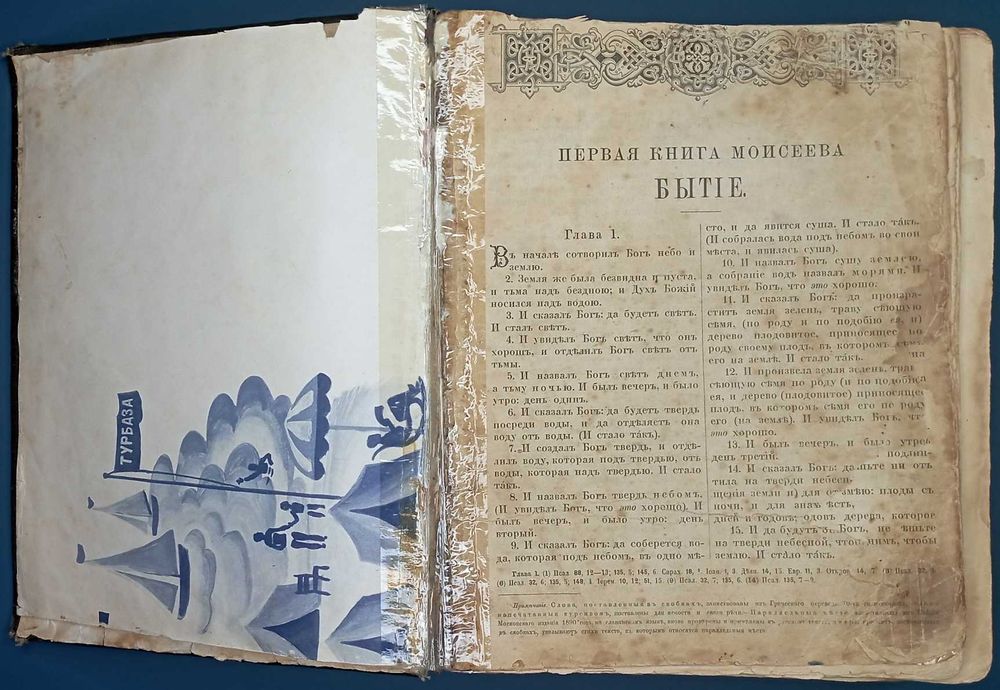 ТУРБАЗА
ПЕРВАЯ КНИГА МОИСЕЕВА
БЫТІЕ.
Глава 1.
Въ началѣ сотворилъ Богъ небо и
землю.
2. Земля же была безвидна и пуста,
и тьма надъ бездною; и Духъ Божій
носился надъ водою.
3. И сказалъ Богъ: да будетъ свѣтъ.
И сталъ свѣтъ.
4. И увидѣлъ Богъ свѣтъ, что онъ
хорошъ, и отдѣлилъ Богъ свѣтъ отъ
тьмы.
5. И назвалъ Богъ свѣтъ днемъ,
а тьму ночью. И былъ вечеръ, и было
утро: день одинъ.
6. И сказалъ Богъ: да будетъ твердь
посреди воды, и да отдѣляетъ она
воду отъ воды. (И стало такъ).
7. И создалъ Богъ твердь, и отдѣ-
лилъ воду, которая подъ твердью, отъ
воды, которая надъ твердью. И стало
такъ.
8. И назвалъ Богъ твердь небомъ.
(И увидѣлъ Богъ, что это хорошо). И
былъ вечеръ, и было утро: день
второй.
9. И сказалъ Богъ: да соберется во-
да, которая подъ небомъ, въ одно мѣ-
сто, и да явится суша. И стало такъ.
(И собралась вода подъ небомъ во свои
мѣста, и явилась суша).
10. И назвалъ Богъ сушу землею,
а собраніе водъ назвалъ морями. И
увидѣлъ Богъ, что это хорошо.
11. И сказалъ Богъ: да произра-
ститъ земля зелень, траву сѣющую
сѣмя, (по роду и по подобію ея, и)
дерево плодовитое, приносящее по
роду своему плодъ, въ которомъ сѣмя
его на землѣ. И стало такъ. на
12. И произвела земля зелень, трав
сѣющую сѣмя по роду (и по подобію
ея, и дерево (плодовитое) приносящее
плодъ, въ которомъ сѣмя его по роду
его (на землѣ). И увидѣлъ Богъ, чт
это хорошо.
13. И былъ вечеръ, и было утро
день третій.
14. И сказалъ Богъ: да
тила на тверди небесн
щенія земли и) для плоды съ
ночи, и для знам ѣсть,
дней и годовъ; дерева, которое
15. И да будутъ
на тверди небесной, чтобы
землю. И стало такъ.
Глава 1. (1) Псал. 88, 12—13; 135, 5; 145, 6. Сирах. 18, 1. Іоан. 1, 3. Дѣян. 14, 15. Евр. 11, 3. Откров. 14, 7.
(6) Псал. 32, 6; 135, 5; 148, 4. Іерем. 10, 12; 51, 15. (9) Псал. 32, 7; 135, 6. (14) Псал. 135, 7—9.
Примѣчаніе. Слова, поставленныя въ скобкахъ, заимствованы изъ Греческаго перевода
Московскаго изданія 1890 года, на славянскомъ языкѣ, вновь
въ скобкахъ, указываютъ стихъ текста, къ которымъ относятся параллельныя мѣста.